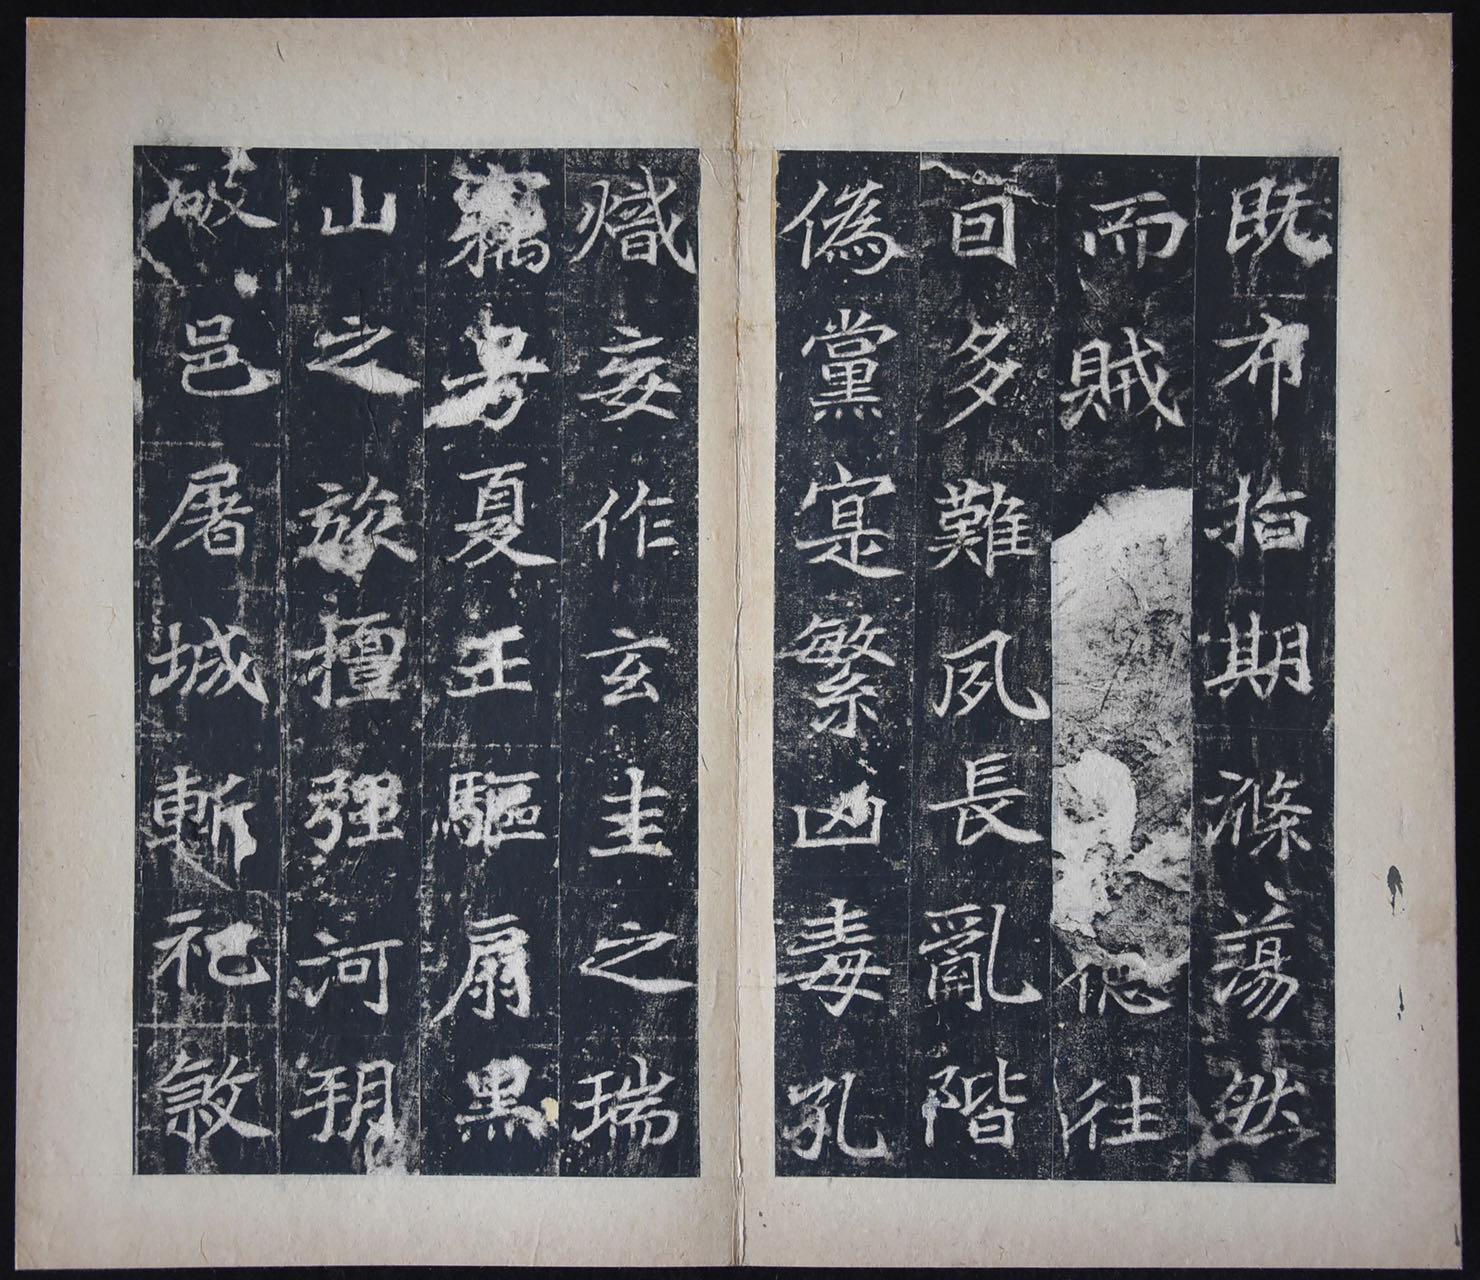 既布指期滌蕩然
而賊往
囙多難夙長亂階
偽黨寔繁凶毒孔
熾妄作玄圭之瑞
竊号夏王驅扇黑
山之旅擅强河朔
破邑屠城斬祀殺